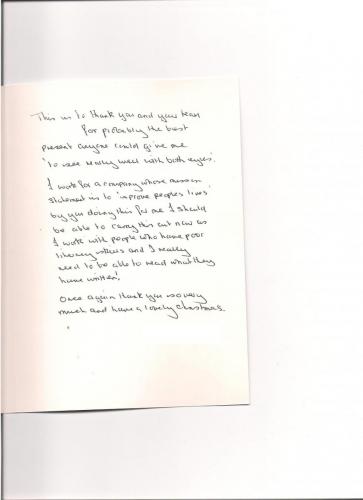 This is to thank you and your team
for probably the best
present anyone could give me
'to see really well with both eyes'.
I work for a company whose mission
statement is to 'improve peoples lives'
by you doing this for me I should
be able to carry this out now as
I work with people who have poor
literacy skills and I really
need to be able to read what they
have written!
Once again thank you so very
much and have a lovely Christmas.